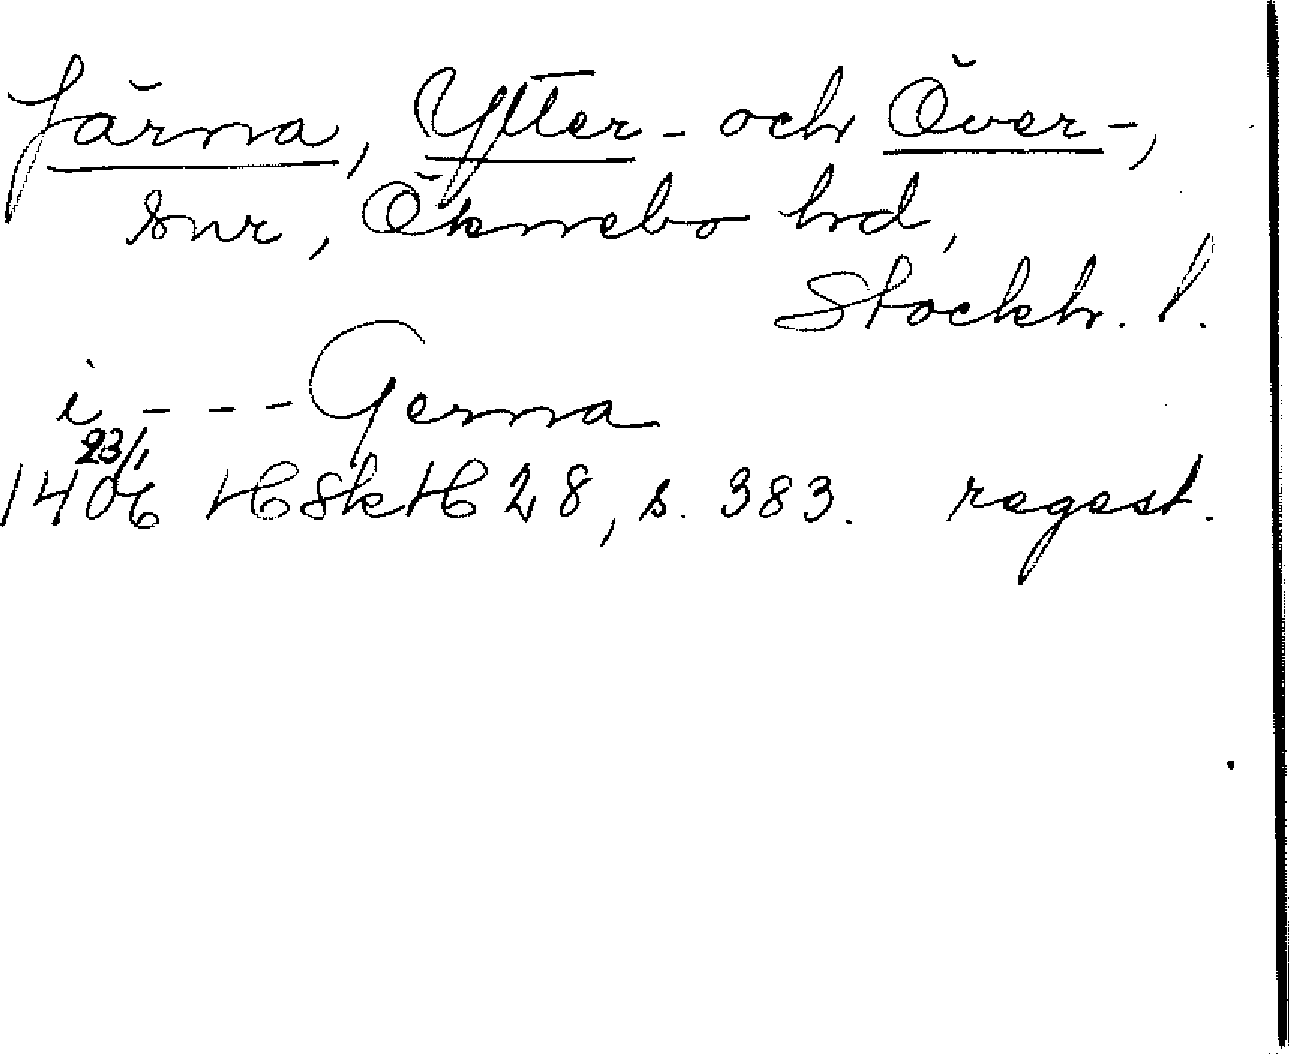 Järna, Ytter- och Över-,
snr, Öknebo hd,
Stockh. l.
i - - - Gerna
23/1
1406 HSkH 28, s. 383. regest.